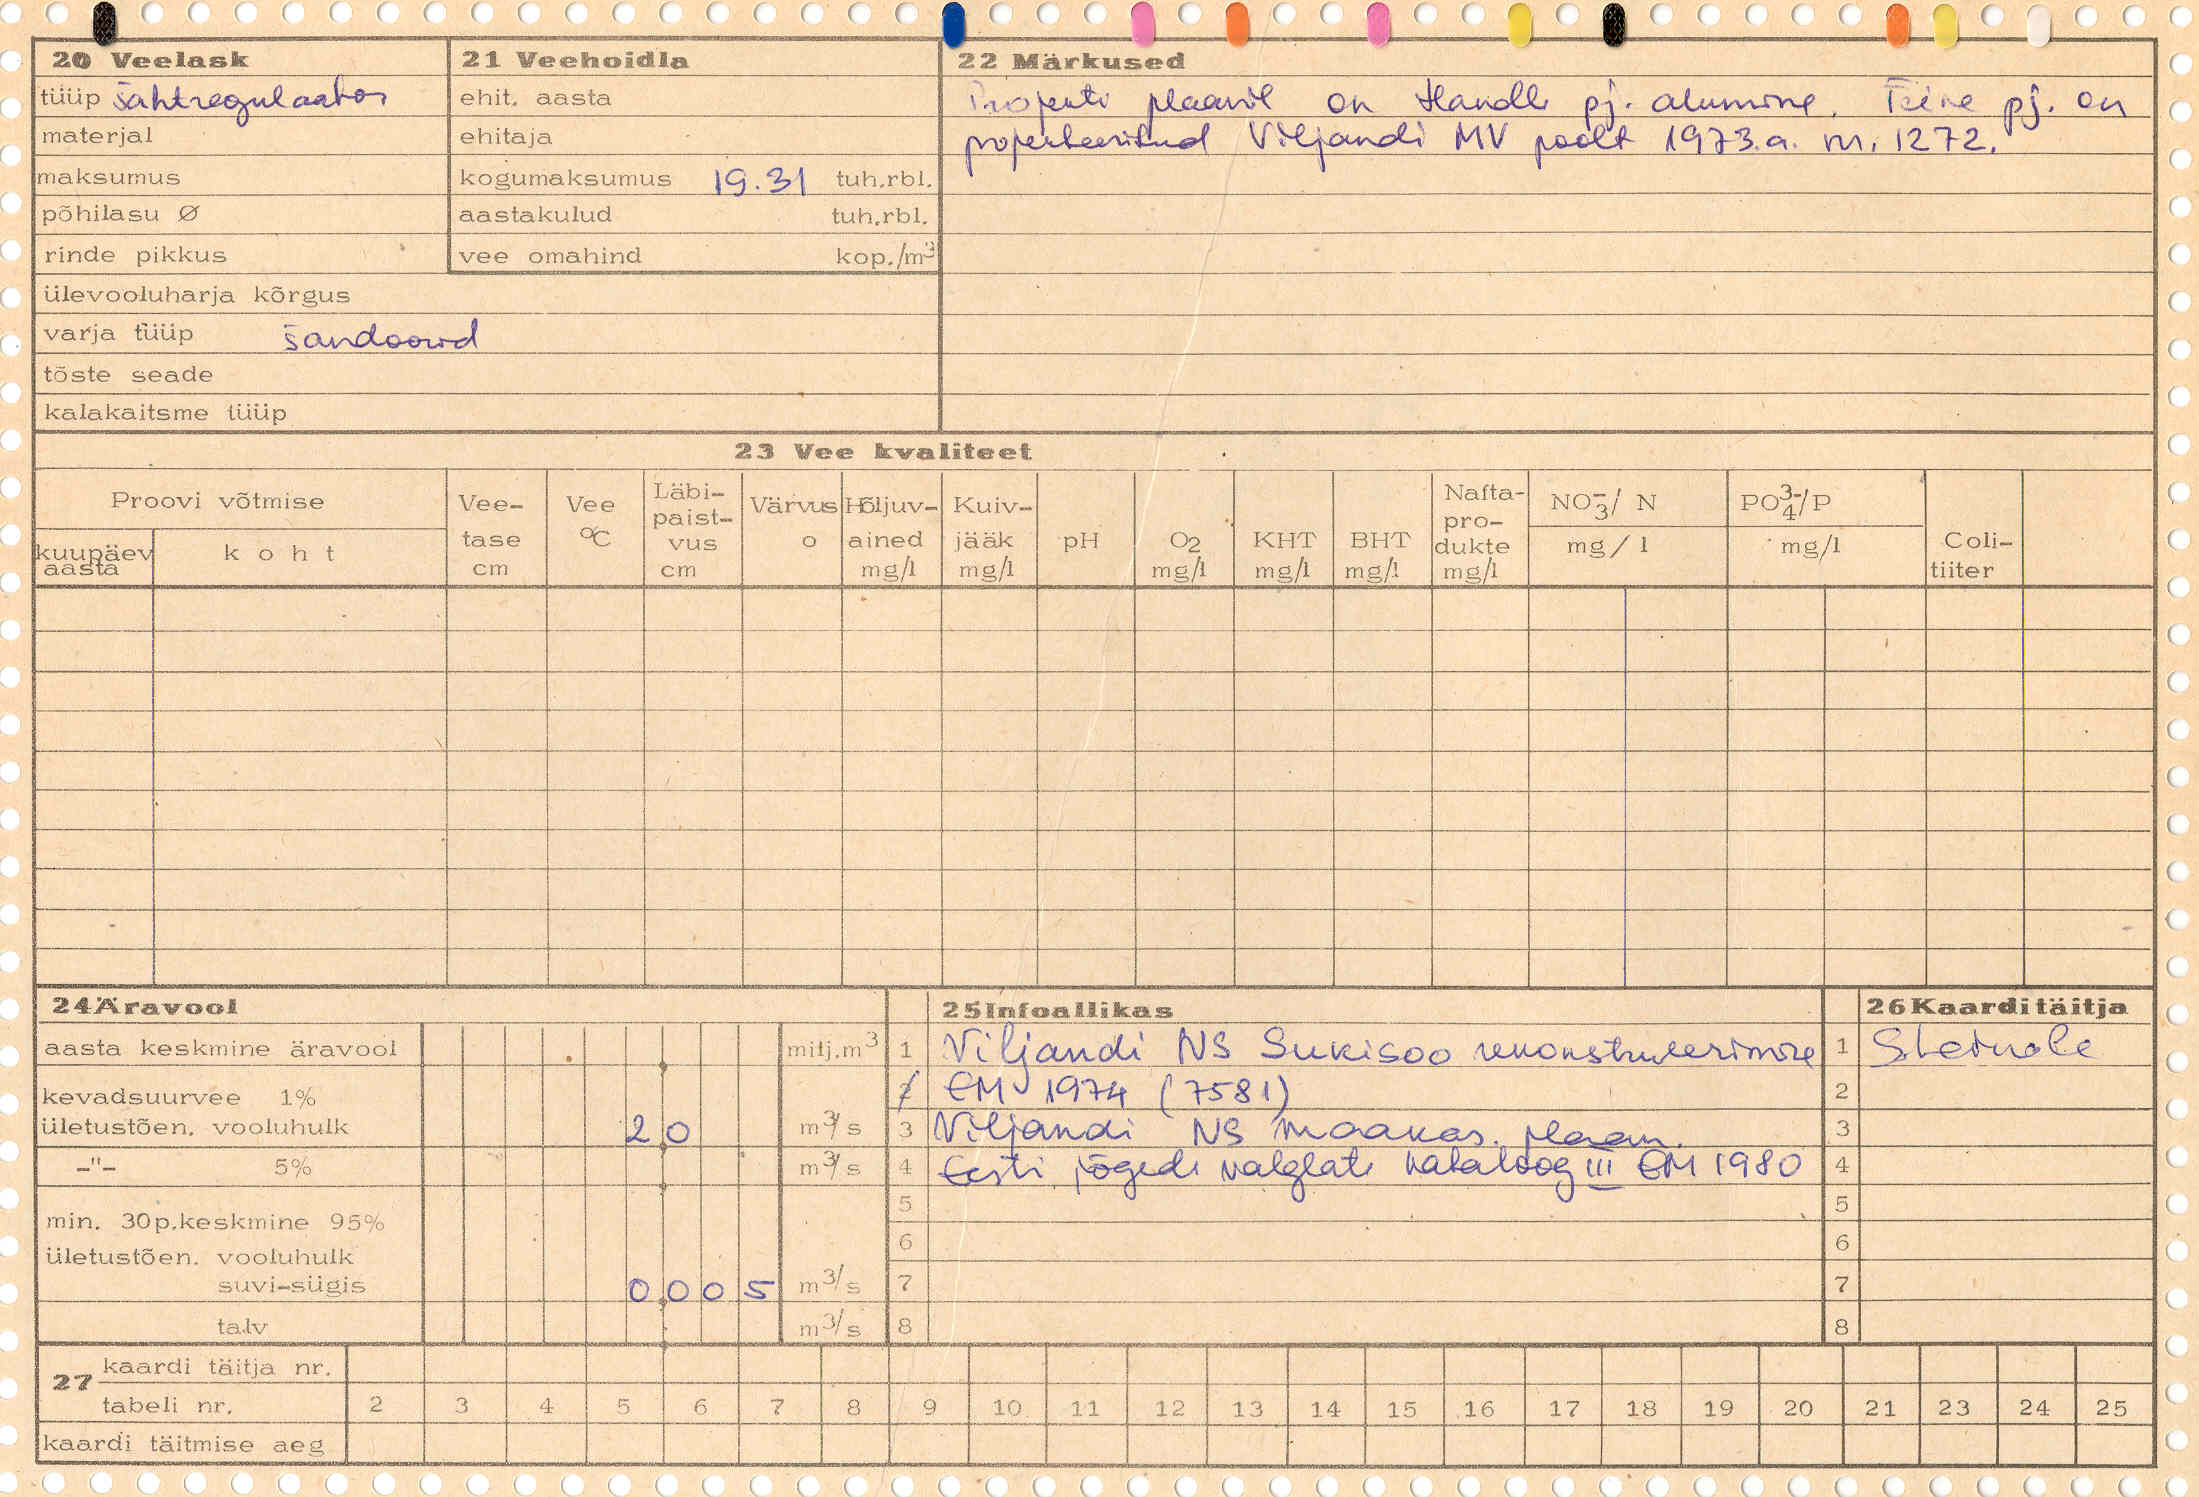 20 Veelask
tüüp šahtregulaator
materjal
maksumus
põhilasu Ø
rinde pikkus
ülevooluharja kõrgus
varja tüüp šandoorid
tõste seade
kalakaitsme tüüp
21 Veehoidla
ehit. aasta
ehitaja
kogumaksumus 19.31 tuh.rbl.
aastakulud tuh.rbl.
vee omahind kop./m³
22 Märkused
Projekti plaanil on Handle pj. alumine. Teine pj. on
projekteeritud Viljandi MV poolt 1973.a. nr. 1272.
23 Vee kvaliteet
Proovi võtmise
kuupäev aasta
koht
Vee-tase cm
Vee °C
Läbi-paist-vus cm
Värvus o
Hõljuv-ained mg/l
Kuiv-jääk mg/l
pH
O2 mg/l
KHT mg/l
BHT mg/l
Nafta-pro-dukte mg/l
NO3-/ N mg/l
PO4 3-/P mg/l
Coli-tiiter
24 Äravool
aasta keskmine äravool milj.m³
kevadsuurvee 1%
ületustõen. vooluhulk 2 0 m³/s
-"- 5% m³/s
min. 30p.keskmine 95%
ületustõen. vooluhulk
suvi-sügis 0 0 0 5 m³/s
talv m³/s
25 Infoallikas
1 Viljandi NS Sukisoo rekonstrueerimine
2 EM 1974 (7581)
3 Viljandi NS maakas. plaan.
4 Eesti jõgede valglate kataloog III EM 1980
5
6
7
8
26 Kaardi täitja
1
2
3
4
5
6
7
8
27 kaardi täitja nr.
tabeli nr. 2 3 4 5 6 7 8 9 10 11 12 13 14 15 16 17 18 19 20 21 23 24 25
kaardi täitmise aeg